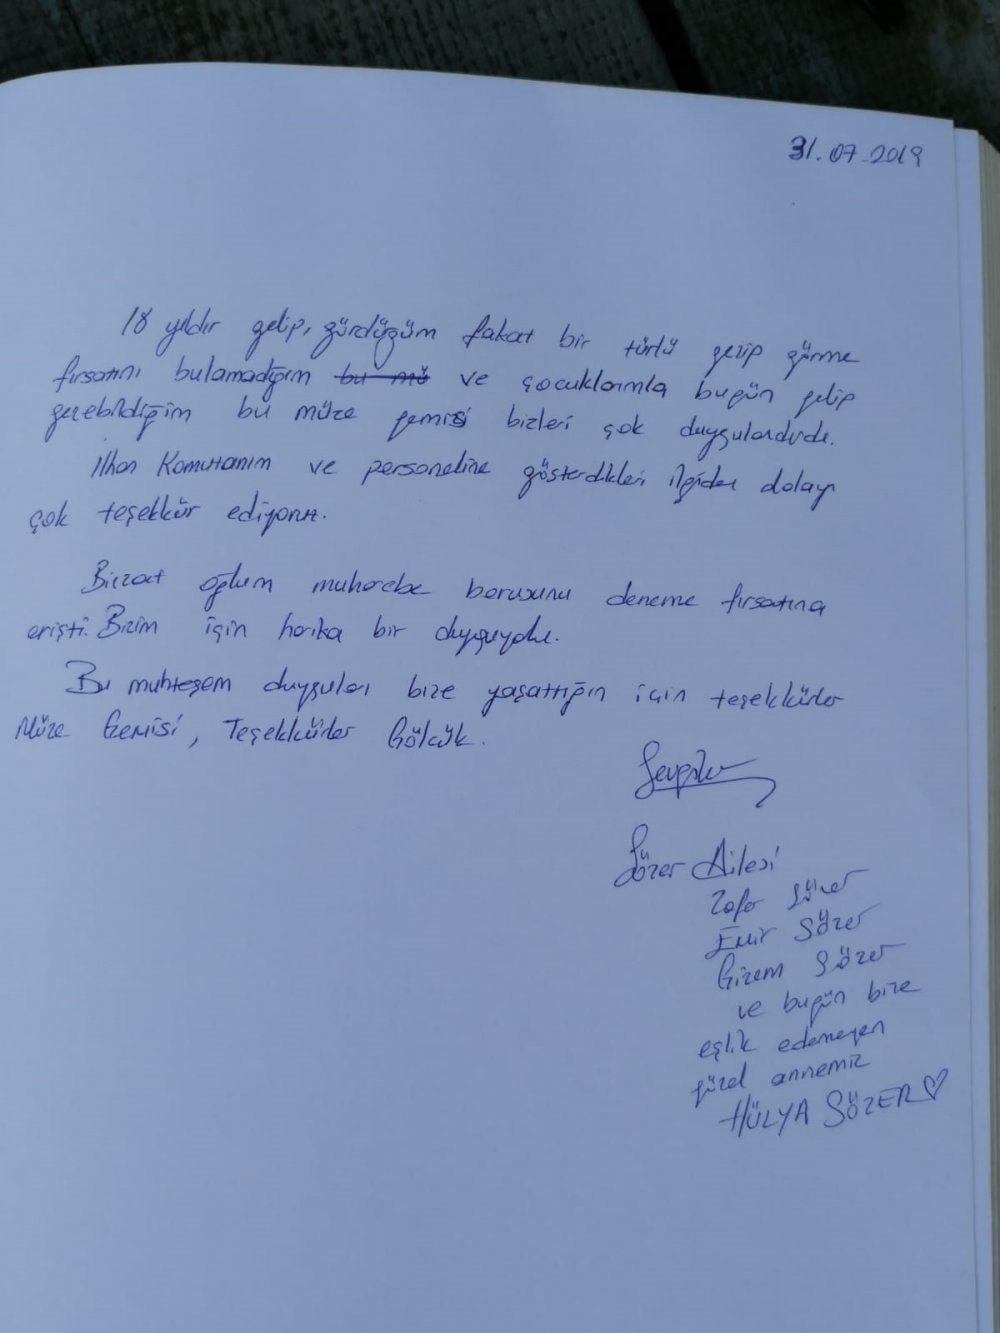 31.07.2019
18 yıldır gelip, gördüğüm fakat bir türlü gezip görme
fırsatını bulamadığım bu mü ve çocuklarımla bugün gelip
gezebildiğim bu müze gemisi bizleri çok duygulandırdı.
İlhan Komutanım ve personeline gösterdikleri ilgiden dolayı
çok teşekkür ediyoruz.
Bizzat oğlum muharebe borusunu deneme fırsatına
erişti. Bizim için harika bir duyguydu.
Bu muhteşem duyguları bize yaşattığın için teşekkürler
Müze Gemisi, Teşekkürler Gölcük.
Sevgiler
Sözer Ailesi
Zafer Sözer
Emir Sözer
Gizem Sözer
ve bugün bize
eşlik edemeyen
güzel annemiz
HÜLYA SÖZER ♡